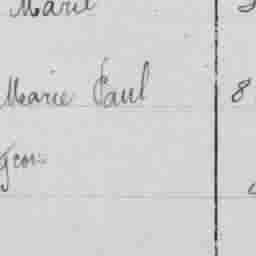 Marie
Marie Paul 8